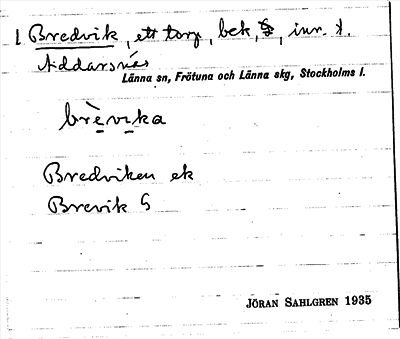 1 Bredvik, ett torp, bek, G, inv. t.
Niddarsnäs
Länna sn, Frötuna och Länna skg, Stockholms l.
brèvıka
Bredviken ek
Brevik G
JÖRAN SAHLGREN 1935